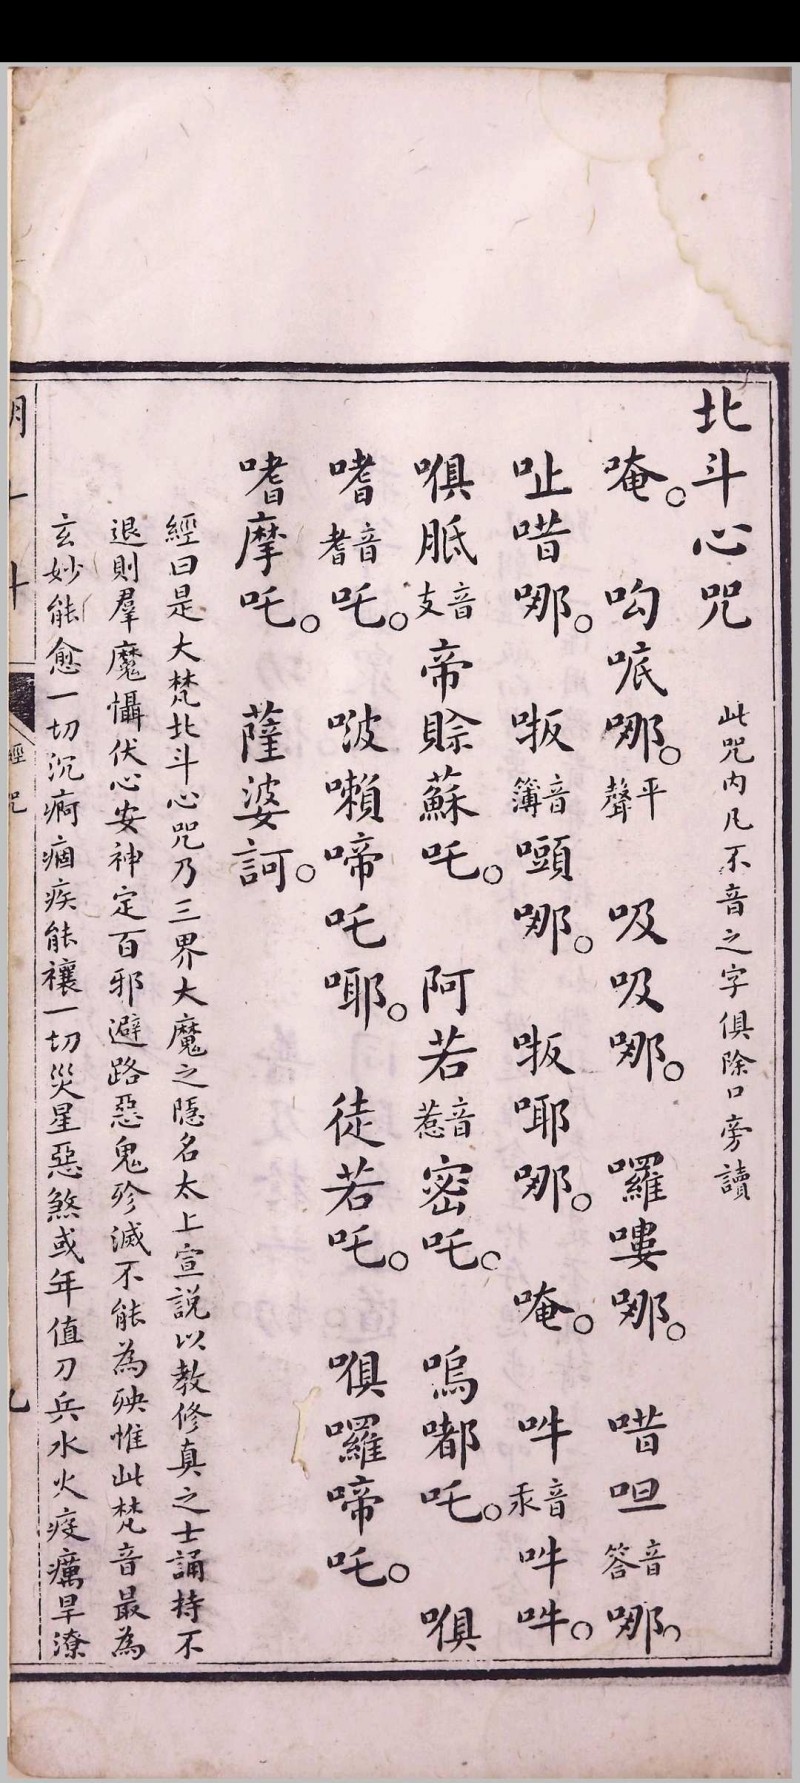 北斗心咒 此咒內凡不音之字俱除口旁讀
唵。 呁㕳哪。平聲 吸吸哪。 囉嘍哪。 唶呾音答哪。
呲唶哪。 㕰音簿㗐哪。 㕰㖿哪。 唵。 吽音汞吽吽。
㖵胝音支帝賒蘇吒。 阿若音惹密吒。 嗚嘟吒。 㖵
嗜音耆吒。 啵嚹啼吒㖿。 徒若吒。 㖵囉啼吒。
嗜摩吒。 薩婆訶。
經曰是大梵北斗心咒乃三界大魔之隱名太上宣說以教修真之士誦持不
退則羣魔懾伏心安神定百邪避路惡鬼殄滅不能為殃惟此梵音最為
玄妙能愈一切沉痾痼疾能禳一切災星惡煞或年值刀兵水火疫癘旱潦
經咒